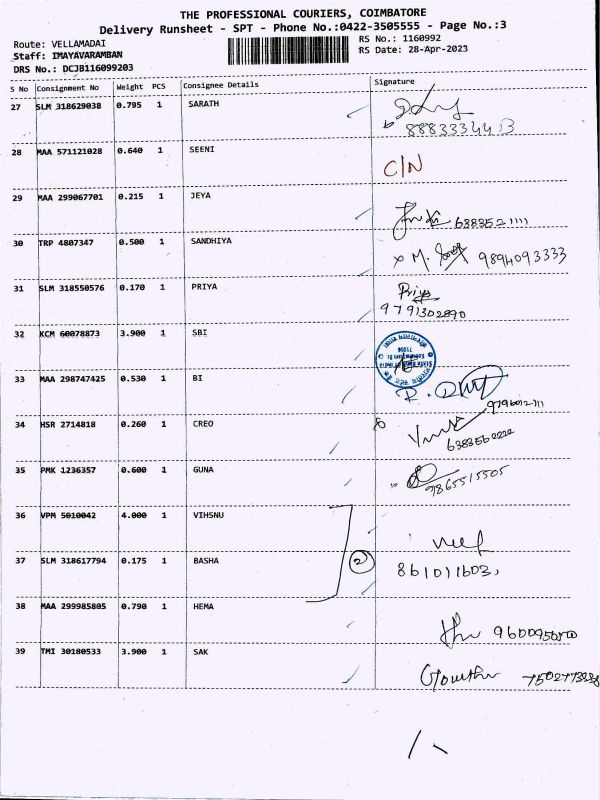 THE PROFESSIONAL COURIERS, COIMBATORE
Delivery Runsheet - SPT - Phone No.:0422-3505555 - Page No.:3
Route: VELLAMADAI
RS No.: 1160992
Staff: IMAYAVARAMBAN
RS Date: 28-Apr-2023
DRS No.: DCJB116099203
S No Consignment No Weight PCS Consignee Details Signature
27 SLM 318629038 0.795 1 SARATH
8883334413
28 MAA 571121028 0.640 1 SEENI
C/N
29 MAA 299067701 0.215 1 JEYA
6383521111
30 TRP 4807347 0.500 1 SANDHIYA
x M. 9894093333
31 SLM 318550576 0.170 1 PRIYA Priya
9791302890
32 KCM 60078873 3.900 1 SBI
33 MAA 298747425 0.530 1 BI
34 HSR 2714818 0.260 1 CREO
35 PMK 1236357 0.600 1 GUNA
9865515505
36 VPM 5010042 4.000 1 VIHSNU
37 SLM 318617794 0.175 1 BASHA 2
861011603,
38 MAA 299985805 0.790 1 HEMA
39 TMI 30180533 3.900 1 SAK